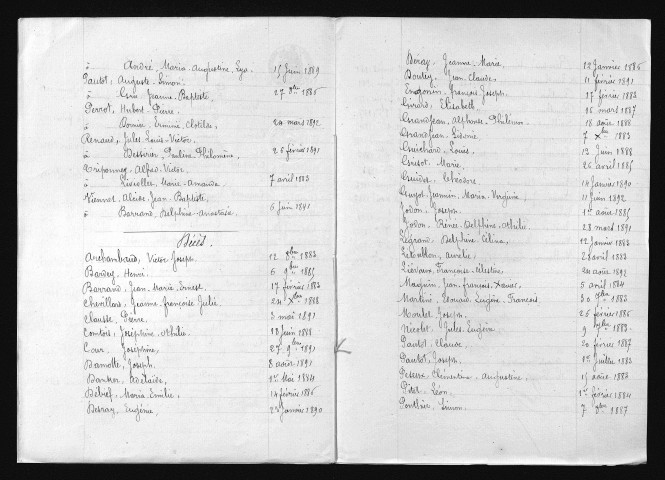 à André, Maria Augustine Lya. 15 Juin 1889
Pautot, Auguste Simon.
à Cour, Jeanne Baptiste. 27 8bre 1886
Perrot, Hubert Pierre.
à Bornier, Erminie Clotilde. 24 mars 1892
Renaud, Jules Louis Victor.
à Bessirier, Paulina Philomène. 28 février 1891
Triponney, Alfred Victor.
à Liviolles, Marie Amanda. 7 avril 1883
Viennet, Alcide Jean Baptiste.
à Barrand, Delphine Anastasie. 6 juin 1891
Décès.
Archambaud, Victor Joseph. 12 8bre 1883
Bardey, Henri. 6 9bre 1885
Barrand, Jean Marie Ernest. 17 février 1883
Chevillard, Jeanne françoise Julie. 24 Xbre 1888
Clausse, Pierre. 3 mai 1891
Comtois, Joséphine Othilie. 18 juin 1888
Cour, Joséphine. 27 9bre 1891
Damotte, Joseph. 8 août 1891
Banker, Adélaïde. 1er Mai 1884
Débief, Maria Emilie. 14 février 1886
Desray, Eugénie. 28 Janvier 1890
Deray, Jeanne Marie. 12 Janvier 1886
Doutey, Jean Claude. 11 février 1891
Engonin, françois Joseph. 17 février 1883
Girard, Elisabeth. 16 mars 1887
Grandjean, Alphonse Philémon. 18 août 1888
Grandjean, Sidonie. 7 Xbre 1883
Guichard, Louis. 12 Juin 1888
Guisot, Marie. 26 avril 1885
Guidot, Théodore. 14 Janvier 1890
Guyot-Jeannin, Maria Virginie. 11 Juin 1892
Jodon, Joseph. 1er août 1885
Jodon, Reinée Delphine Othilie. 28 mars 1891
Legrand, Delphine Célina. 12 Janvier 1883
Letoublon, Aurélie. 28 avril 1883
Liévaux, Françoise Célestine. 24 août 1892
Maiguin, Jean françois Xavier. 5 avril 1884
Martine, Edouard Eugène François. 30 9bre 1883
Moulet, Joseph. 26 février 1886
Nicolet, Jules Eugène. 9 Xbre 1883
Pautot, Claude. 20 février 1887
Pautot, Joseph. 1er Juillet 1883
Peseux, Clémentine Augustine. 15 août 1883
Pitet, Léon. 1er février 1884
Ponthier, Simon. 7 8bre 1887